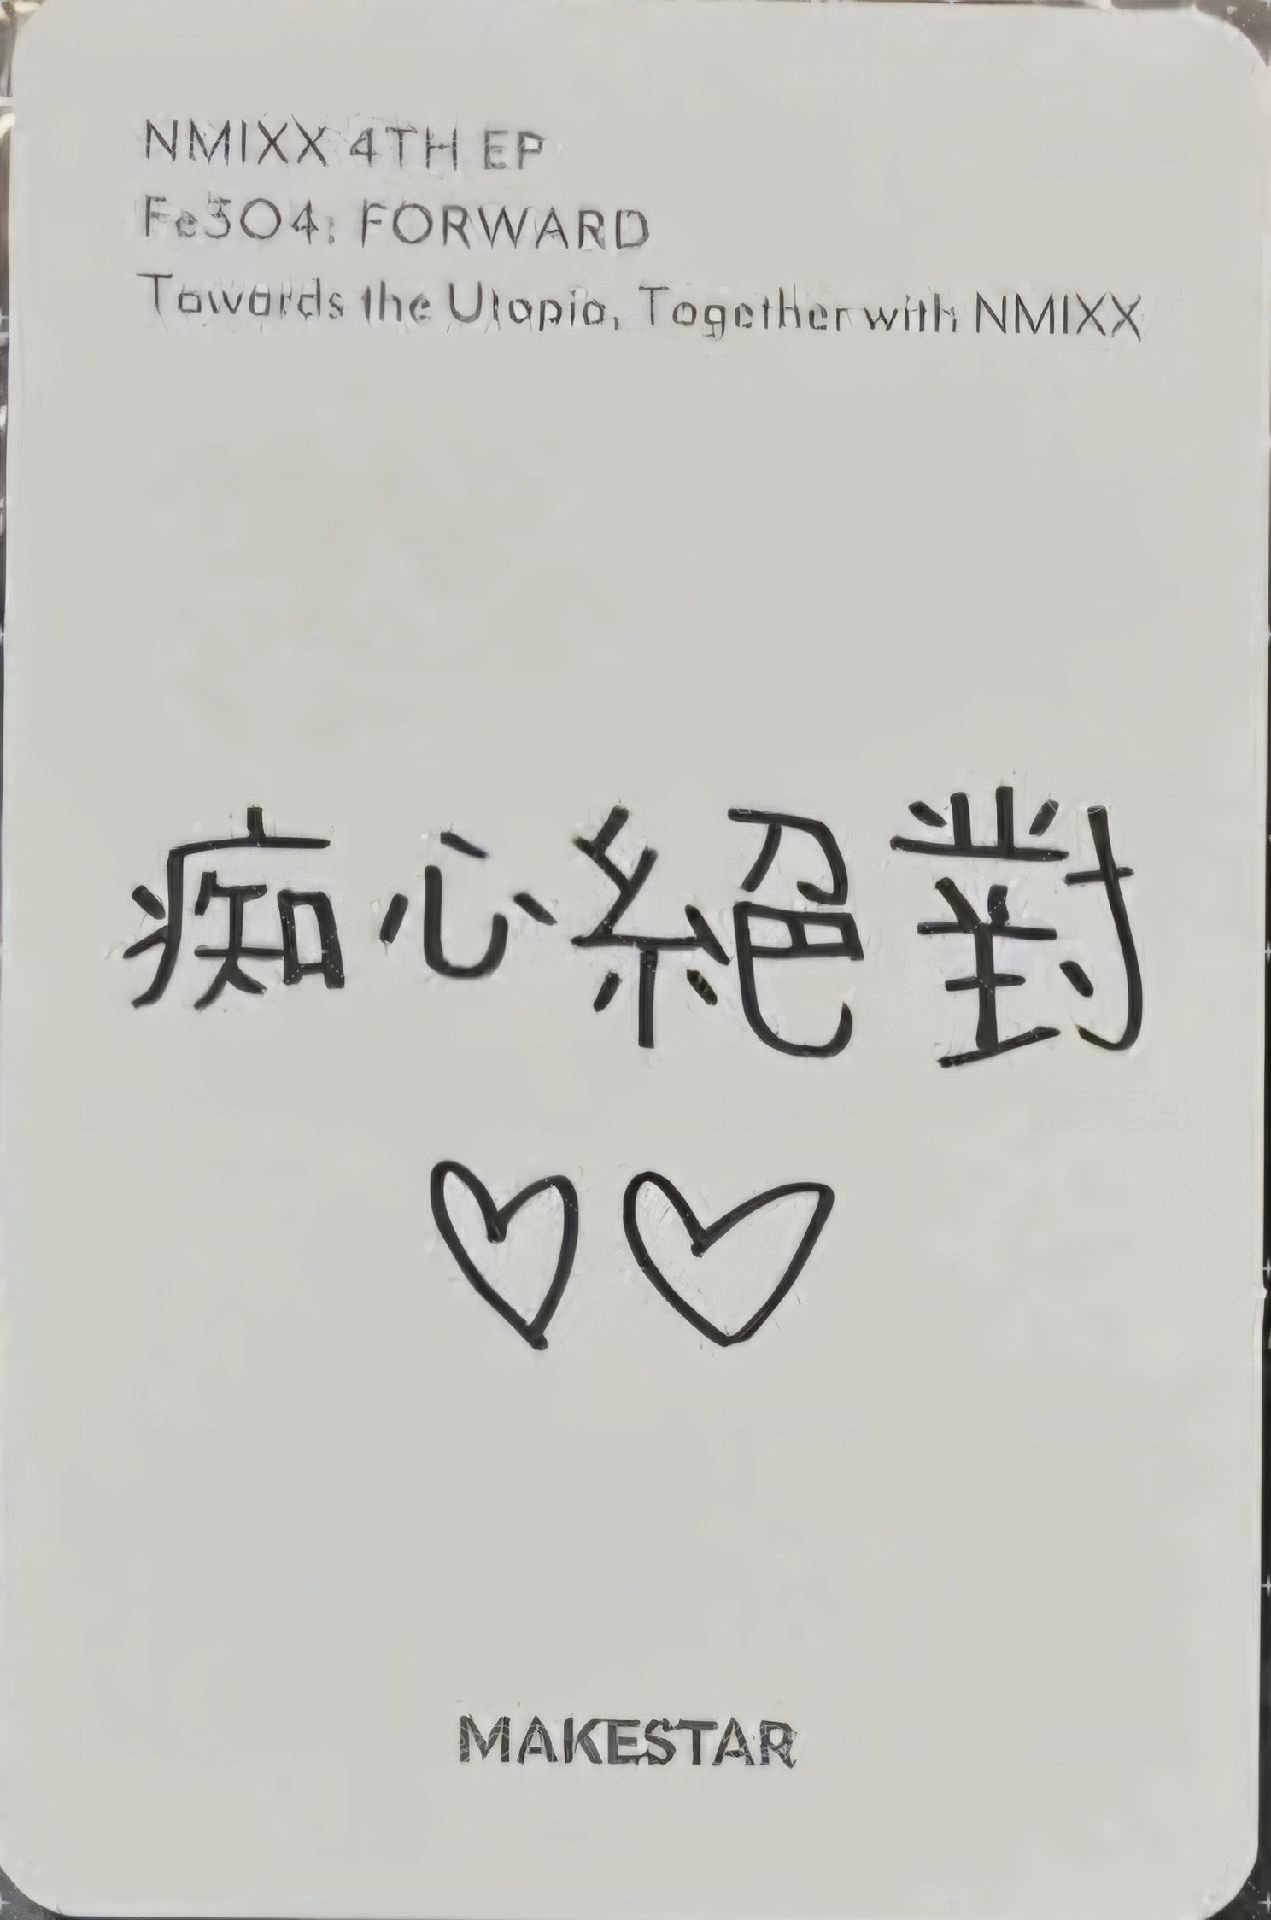 NMIXX 4TH EP
Fe3O4: FORWARD
Towards the Utopia, Together with NMIXX
痴心絕對
MAKESTAR